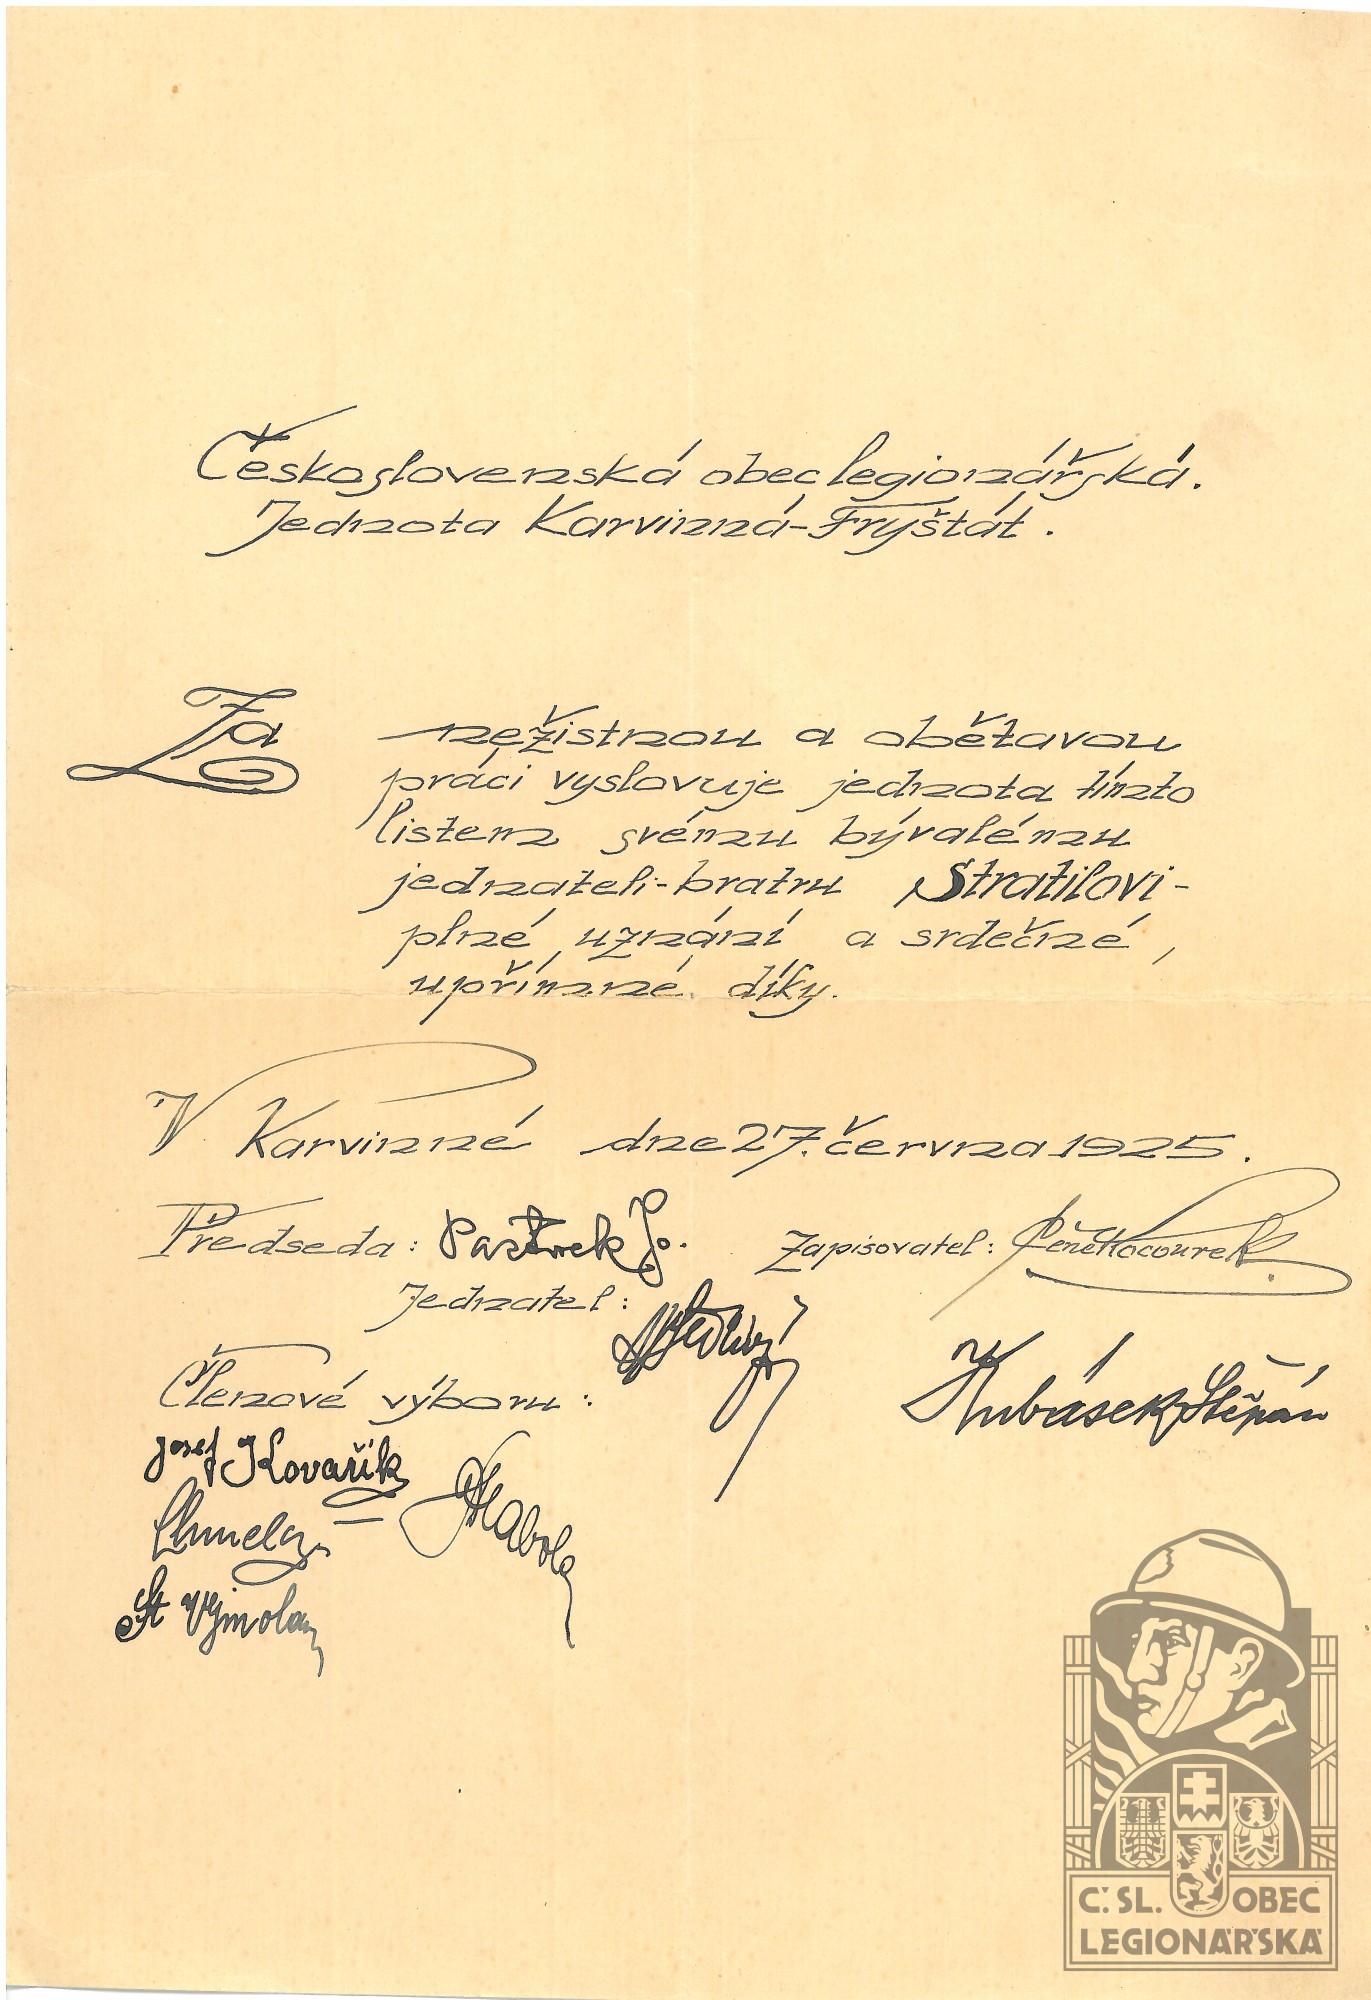 Československá obec legionářská.
Jednota Karvinná-Fryštát.
Za nezištnou a obětavou
práci vyslovuje jednota tímto
listem svému bývalému
jednateli-bratru Stratilovi-
plné uznání a srdečné,
upřímné díky.
V Karvinné dne 27. června 1925.
Předseda: Zapisovatel:
Jednatel:
Kubásek Štěpán
Členové výboru:
Josef Kovařík
St
Č. SL. OBEC
LEGIONÁŘSKÁ